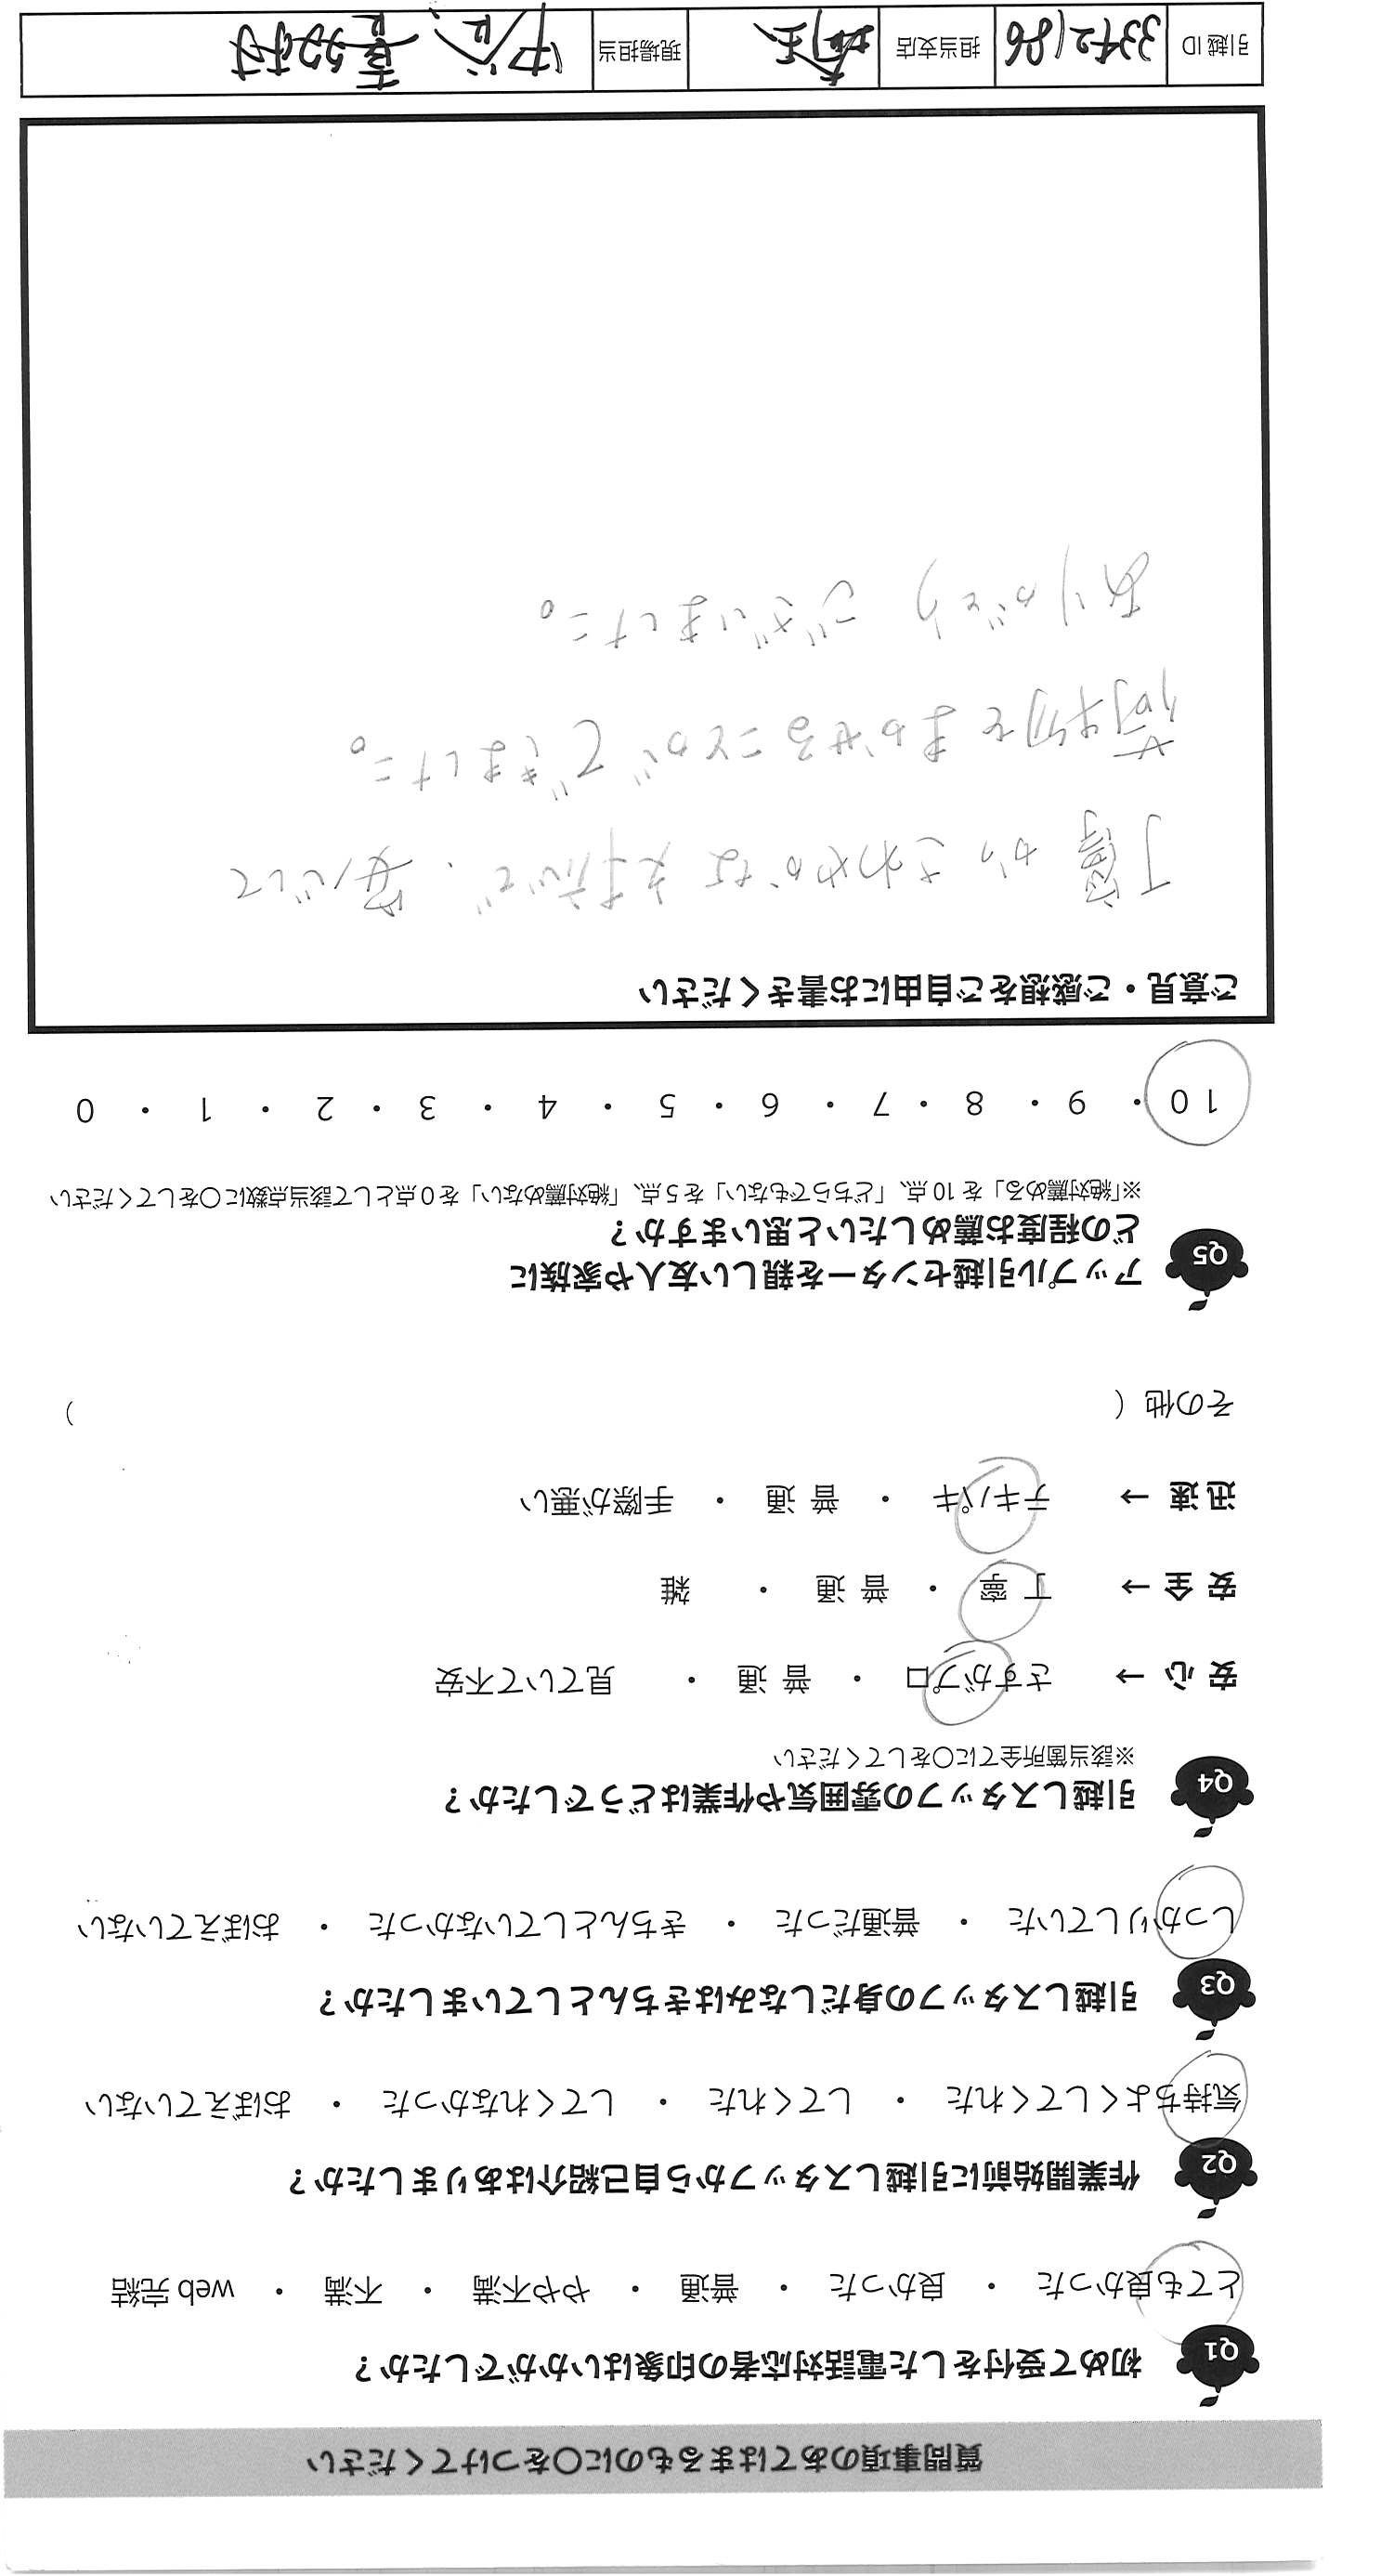 質問事項のあてはまるものに○をつけてください
Q1 初めて受付をした電話対応者の印象はいかがでしたか？
とても良かった ・ 良かった ・ 普通 ・ やや不満 ・ 不満 ・ web 完結
Q2 作業開始前に引越しスタッフから自己紹介はありましたか？
気持ちよくしてくれた ・ してくれた ・ してくれなかった ・ おぼえていない
Q3 引越しスタッフの身だしなみはきちんとしていましたか？
しっかりしていた ・ 普通だった ・ きちんとしていなかった ・ おぼえていない
Q4 引越しスタッフの雰囲気や作業はどうでしたか？
※該当箇所全てに○をしてください
安 心 → さすがプロ ・ 普 通 ・ 見ていて不安
安 全 → 丁 寧 ・ 普 通 ・ 雑
迅 速 → テキパキ ・ 普 通 ・ 手際が悪い
その他（ ）
Q5 アップル引越センターを親しい友人や家族に
どの程度お薦めしたいと思いますか？
※「絶対薦める」を 10 点、「どちらでもない」を 5 点、「絶対薦めない」を 0 点として該当点数に○をしてください
10 ・ 9 ・ 8 ・ 7 ・ 6 ・ 5 ・ 4 ・ 3 ・ 2 ・ 1 ・ 0
ご意見・ご感想をご自由にお書きください
丁寧かつさわやかな対応で、安心して
荷物をまかせることができました。
ありがとうございました。
引越 ID 3342186 担当支店 埼玉 現場担当 中谷、